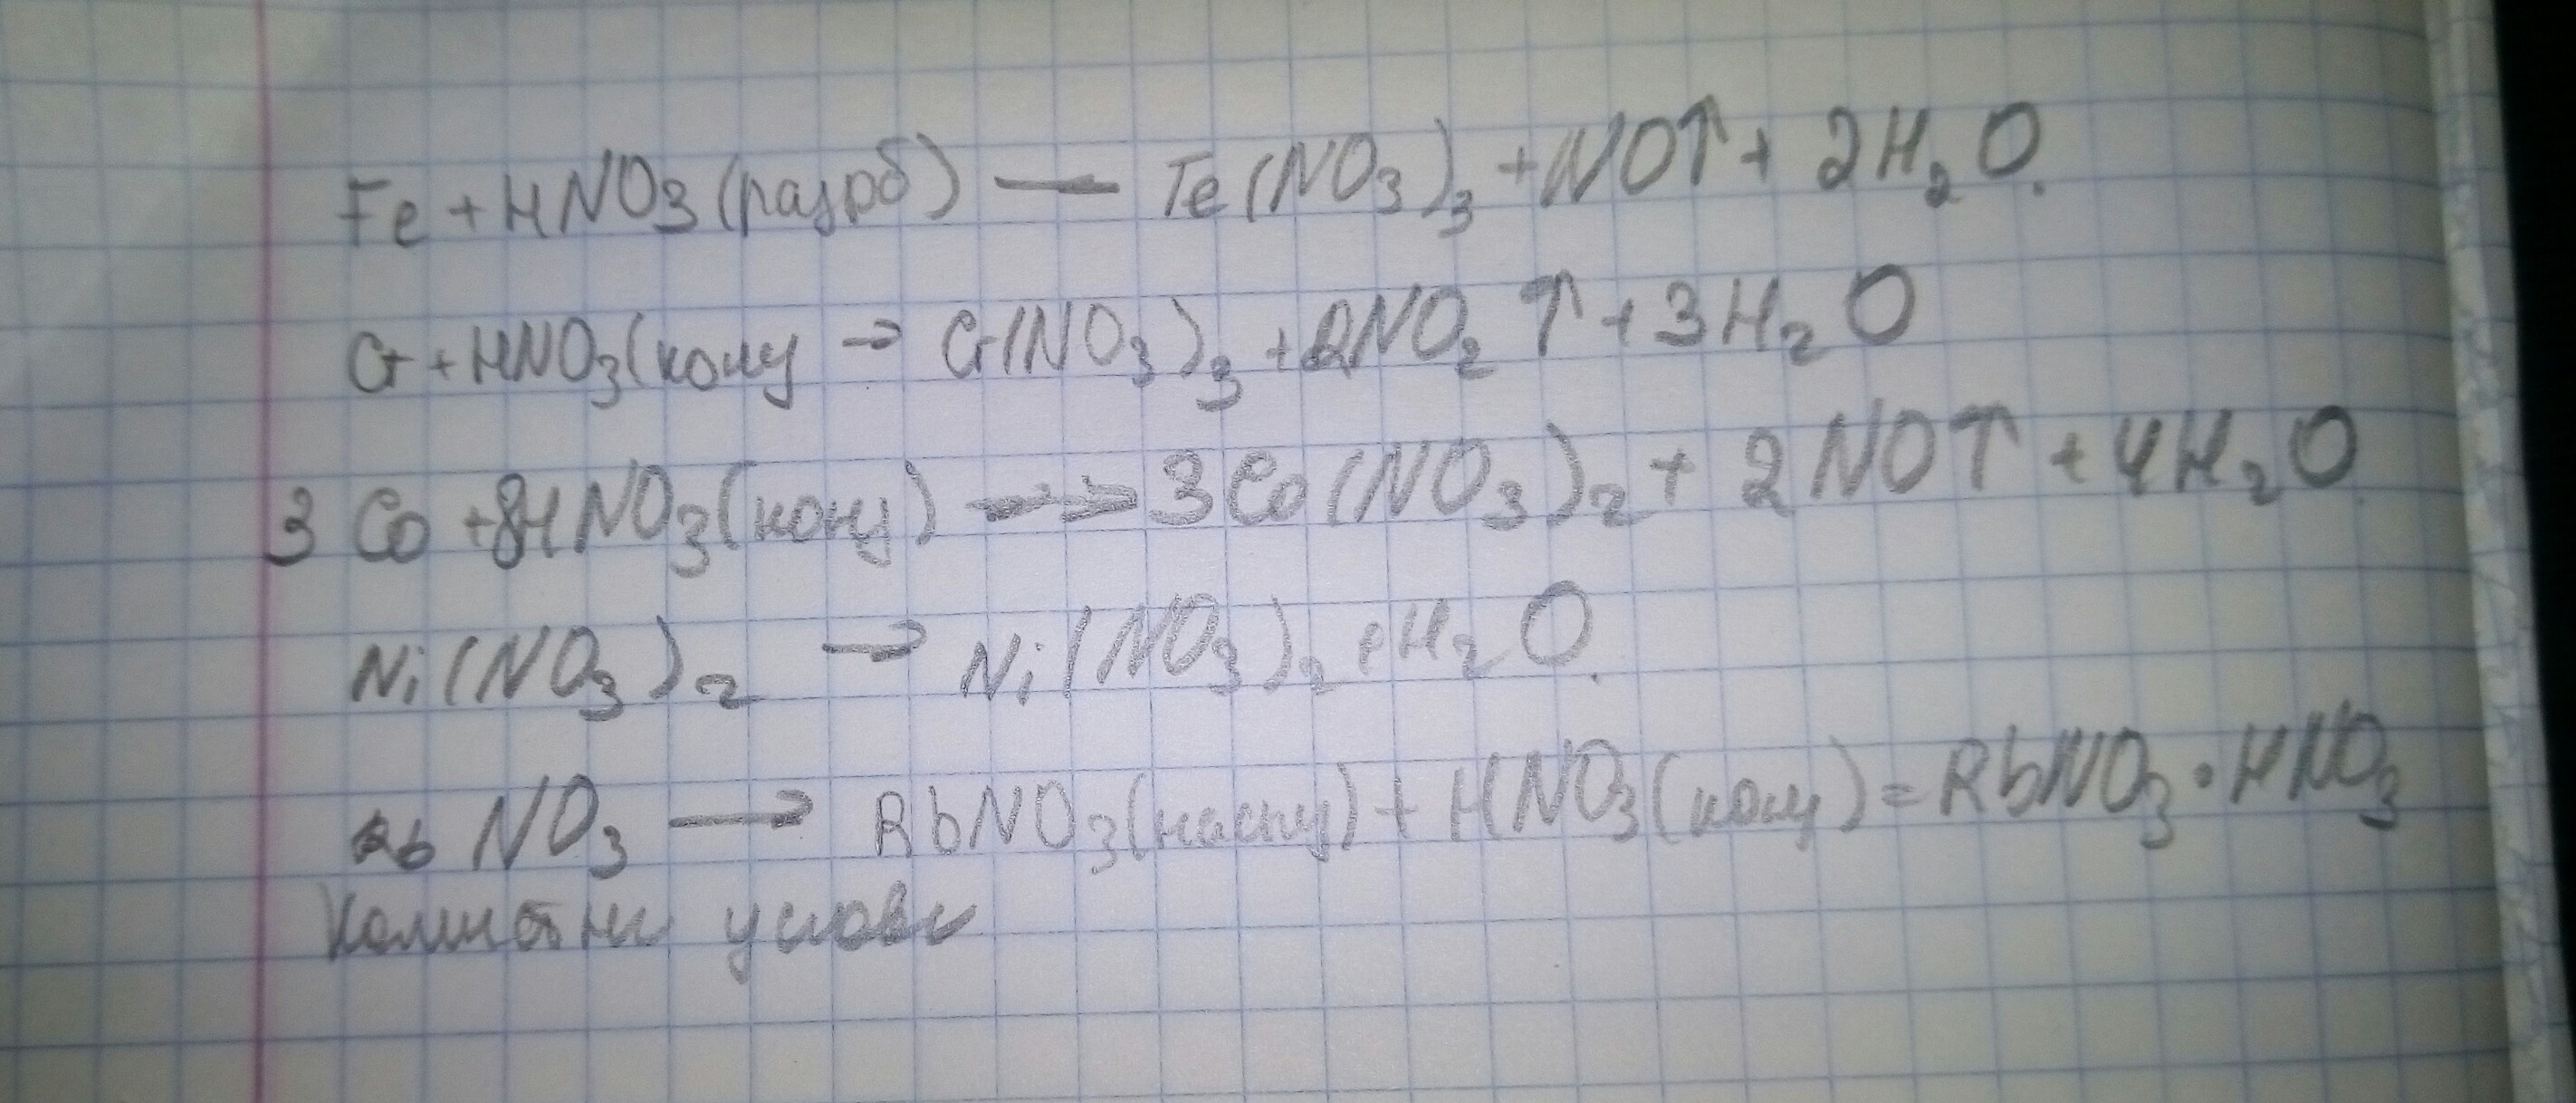 Fe + HNO3 (разб) — Fe(NO3)3 + NO↑ + 2H2O.
Cr + HNO3 (конц → Cr(NO3)3 + 2NO2↑ + 3H2O
3 Co + 8HNO3 (конц) → 3Co(NO3)2 + 2NO↑ + 4H2O.
Ni(NO3)2 → Ni(NO3)2 + H2O.
Rb NO3 → RbNO3 (насыщ) + HNO3 (конц) = RbNO3 • HNO3